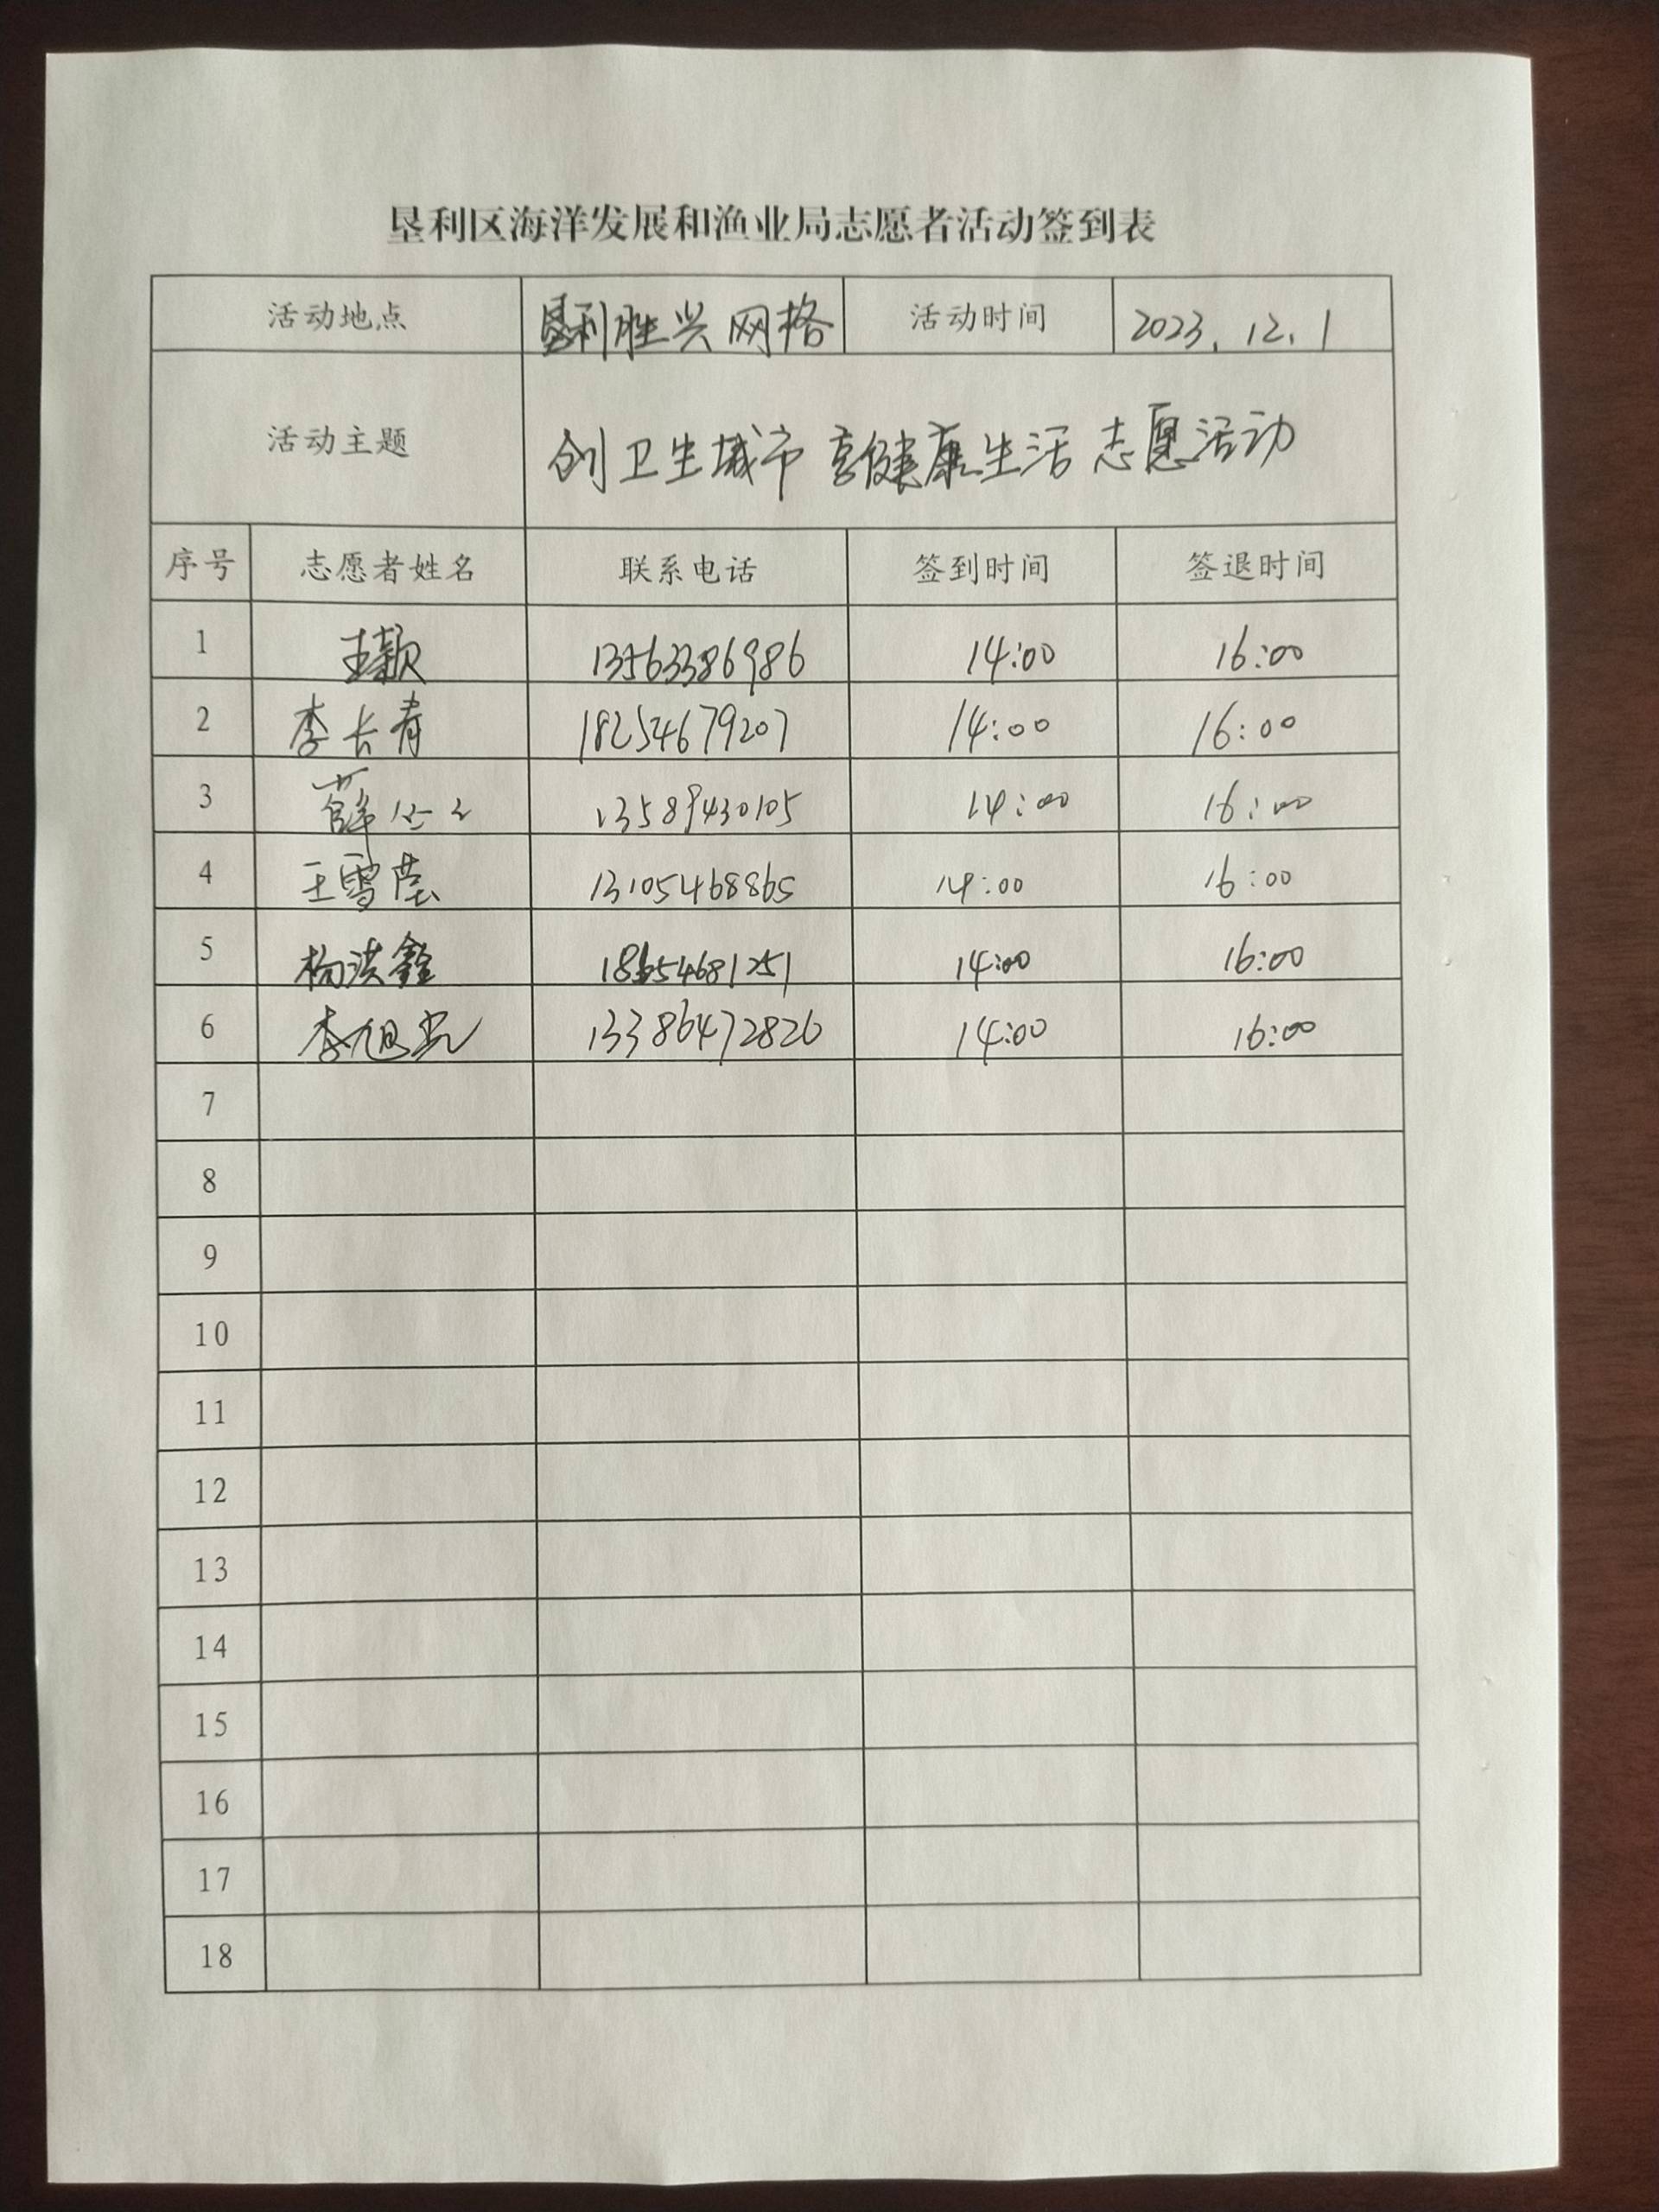 垦利区海洋发展和渔业局志愿者活动签到表
活动地点 垦利胜兴网格 活动时间 2023.12.1
活动主题 创卫生城市 享健康生活 志愿活动
序号 志愿者姓名 联系电话 签到时间 签退时间
1 王颖 13563386986 14:00 16:00
2 李长青 18254679207 14:00 16:00
3 薛 13589430105 14:00 16:00
4 王雪莹 13105468865 14:00 16:00
5 杨洪鑫 18654681251 14:00 16:00
6 李旭光 13386472826 14:00 16:00
7
8
9
10
11
12
13
14
15
16
17
18